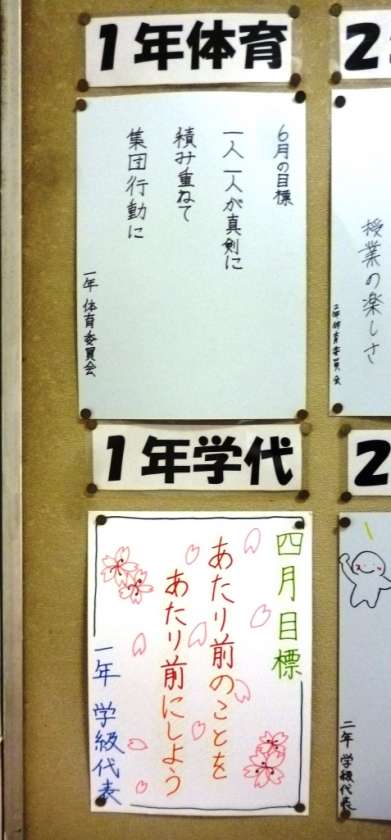 1年体育
6月の目標
一人一人が真剣に
積み重ねて
集団行動に
一年 体育委員会
2
授業の楽しさ
二年体育委員会
1年学代
四月目標
あたり前のことを
あたり前にしよう
一年 学級代表
2
二年 学級代表